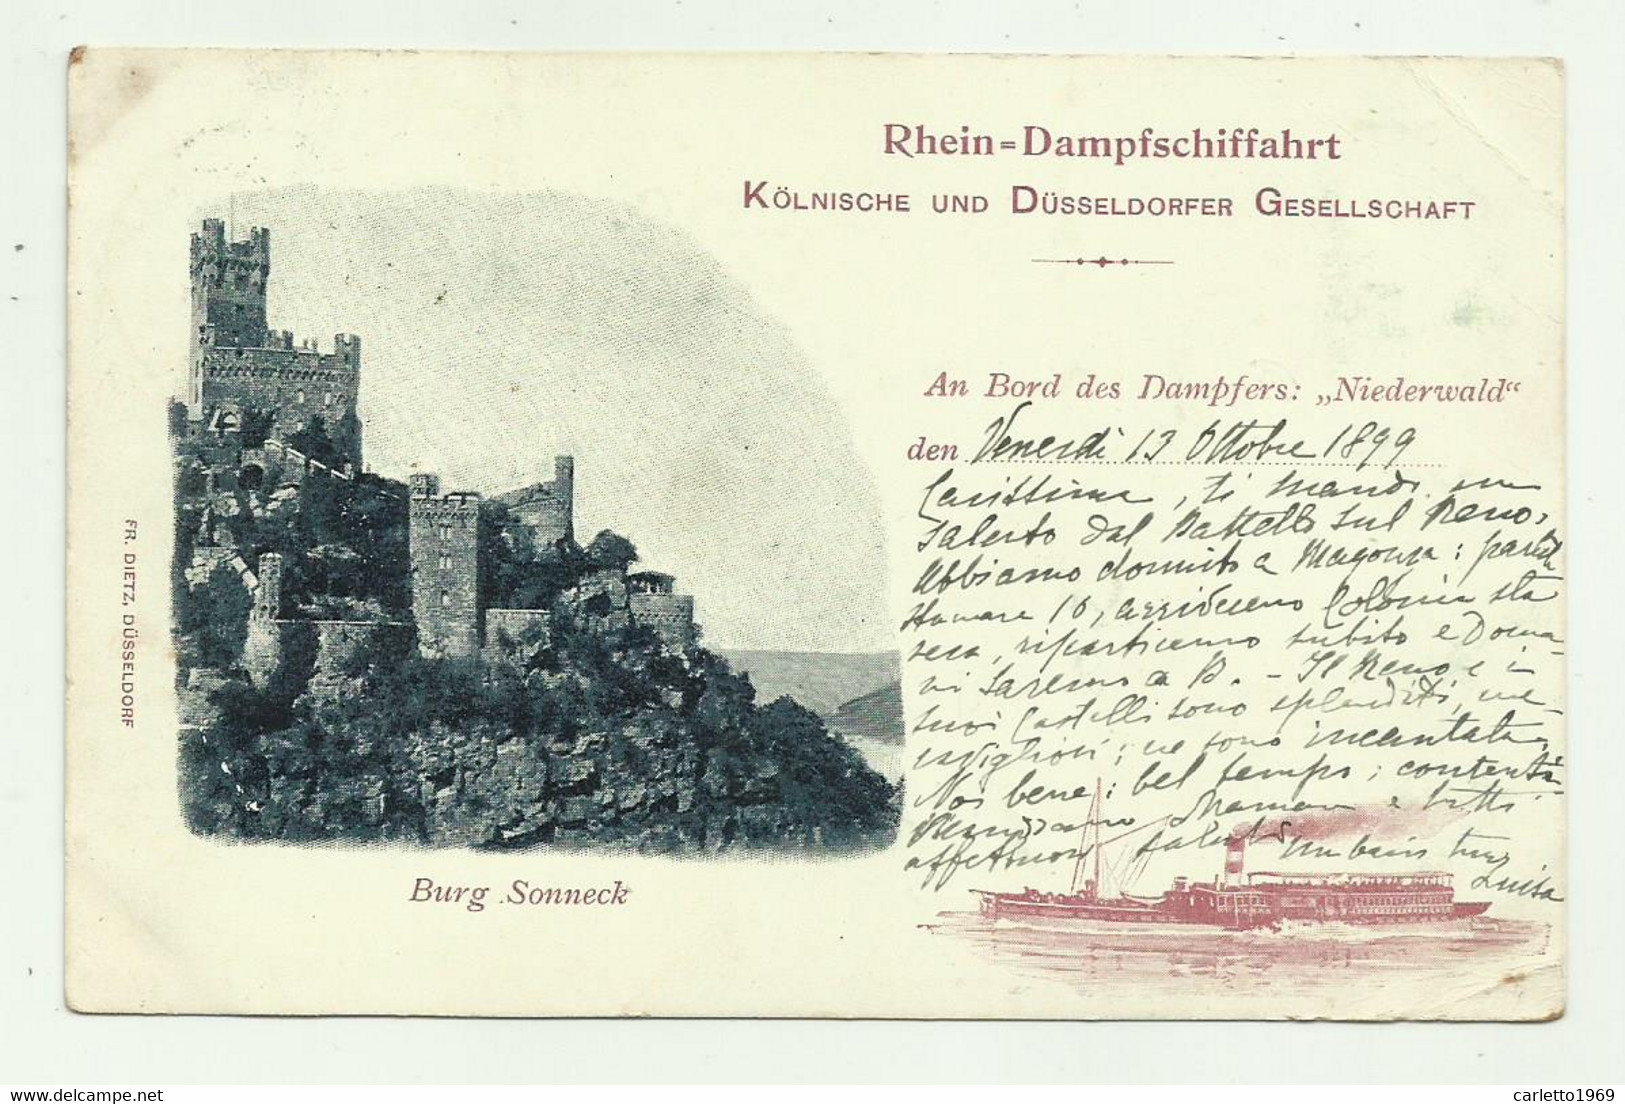 Rhein=Dampfschiffahrt
KÖLNISCHE UND DÜSSELDORFER GESELLSCHAFT
An Bord des Dampfers: „Niederwald“
den Venerdì 13 Ottobre 1899
Carissima, ti mando un
saluto dal Battello sul Reno.
Abbiamo dormito a Magonza: partiti
stamane 10, arriveremo Colonia sta
sera, ripartiremo subito e doma-
ni saremo a B. - Il Reno e i
suoi Castelli sono splendidi, me-
ravigliosi; ne sono incantata.
Noi bene; bel tempo; contenti
Mamam e tutti
affettuosi saluti un bacio tua
Luisa
Burg Sonneck
FR. DIETZ, DÜSSELDORF
carletto1969